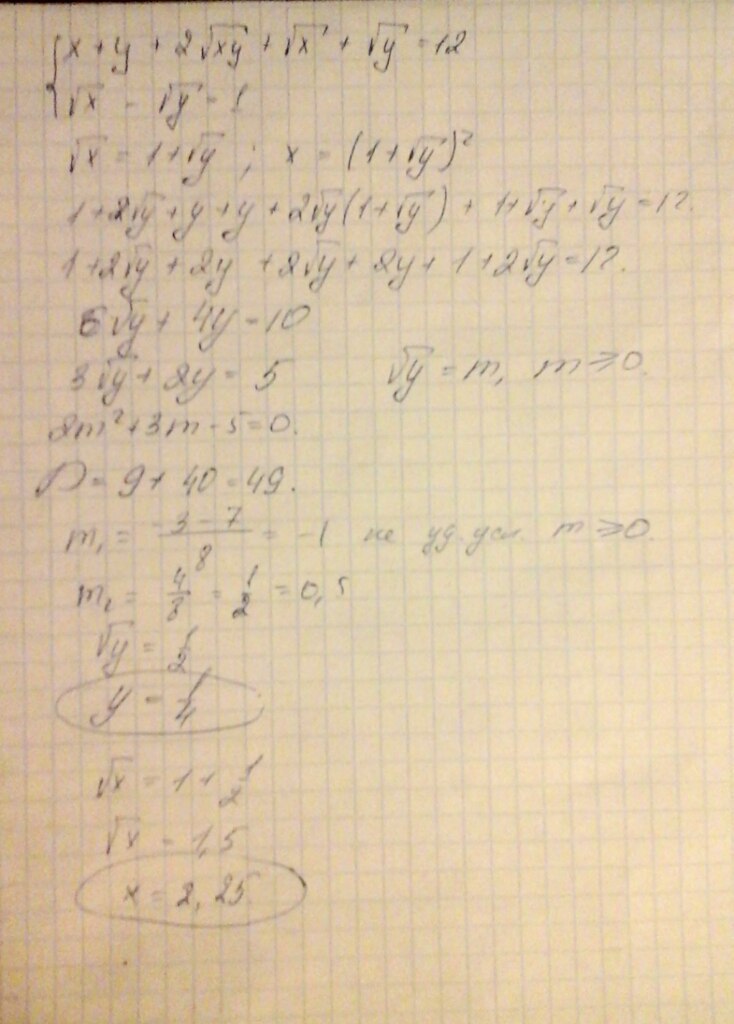 { x + y + 2√xy + √x + √y = 12
√x - √y = 1
√x = 1+√y ; x = (1+√y)²
1+2√y+y+y+2√y(1+√y) + 1+√y+√y=12.
1+2√y+2y+2√y+2y+1+2√y=12.
6√y+4y=10
3√y+2y=5 √y=m, m≥0.
2m²+3m-5=0.
D=9+40=49.
m₁ = -3-7/8 = -1 не уд. усл. m≥0.
m₂ = 4/8 = 1/2 = 0,5
√y = 1/2
y = 1/4
√x = 1+1/2
√x = 1,5
x = 2,25.